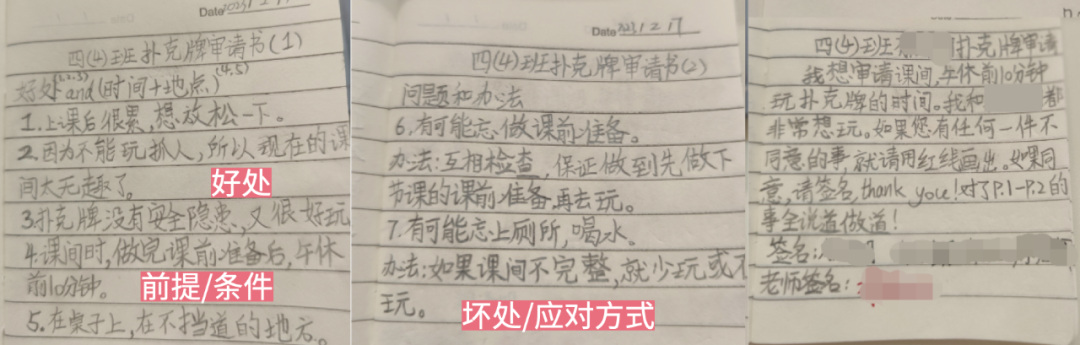 Date 2023/2/17
四(4)班扑克牌审请书(1)
好处(1,2,3) and (时间+地点)(4,5)
1.上课后很累,想放松一下。
2.因为不能玩抓人,所以现在的课
间太无趣了。
好处
3.扑克牌没有安全隐患,又很好玩
4.课间时,做完课前准备后,午休
前10分钟。
前提/条件
5.在桌子上,在不挡道的地方。
Date 2023/2/17
四(4)班扑克牌审请书(2)
问题和办法
6.有可能忘做课前准备。
办法:互相检查,保证做到先做下
节课的课前准备再去玩。
7.有可能忘上厕所,喝水。
办法:如果课间不完整,就少玩或不
玩。
坏处/应对方式
四(4)班 扑克牌审请
我想审请课间,午休前10分钟
玩扑克牌的时间。我和 都
非常想玩。如果您有任何一件不
同意的事,就请用红线画出。如果同
意,请签名,thank you!对了P.1-P.2的
事全说道做道!
签名:
老师签名: